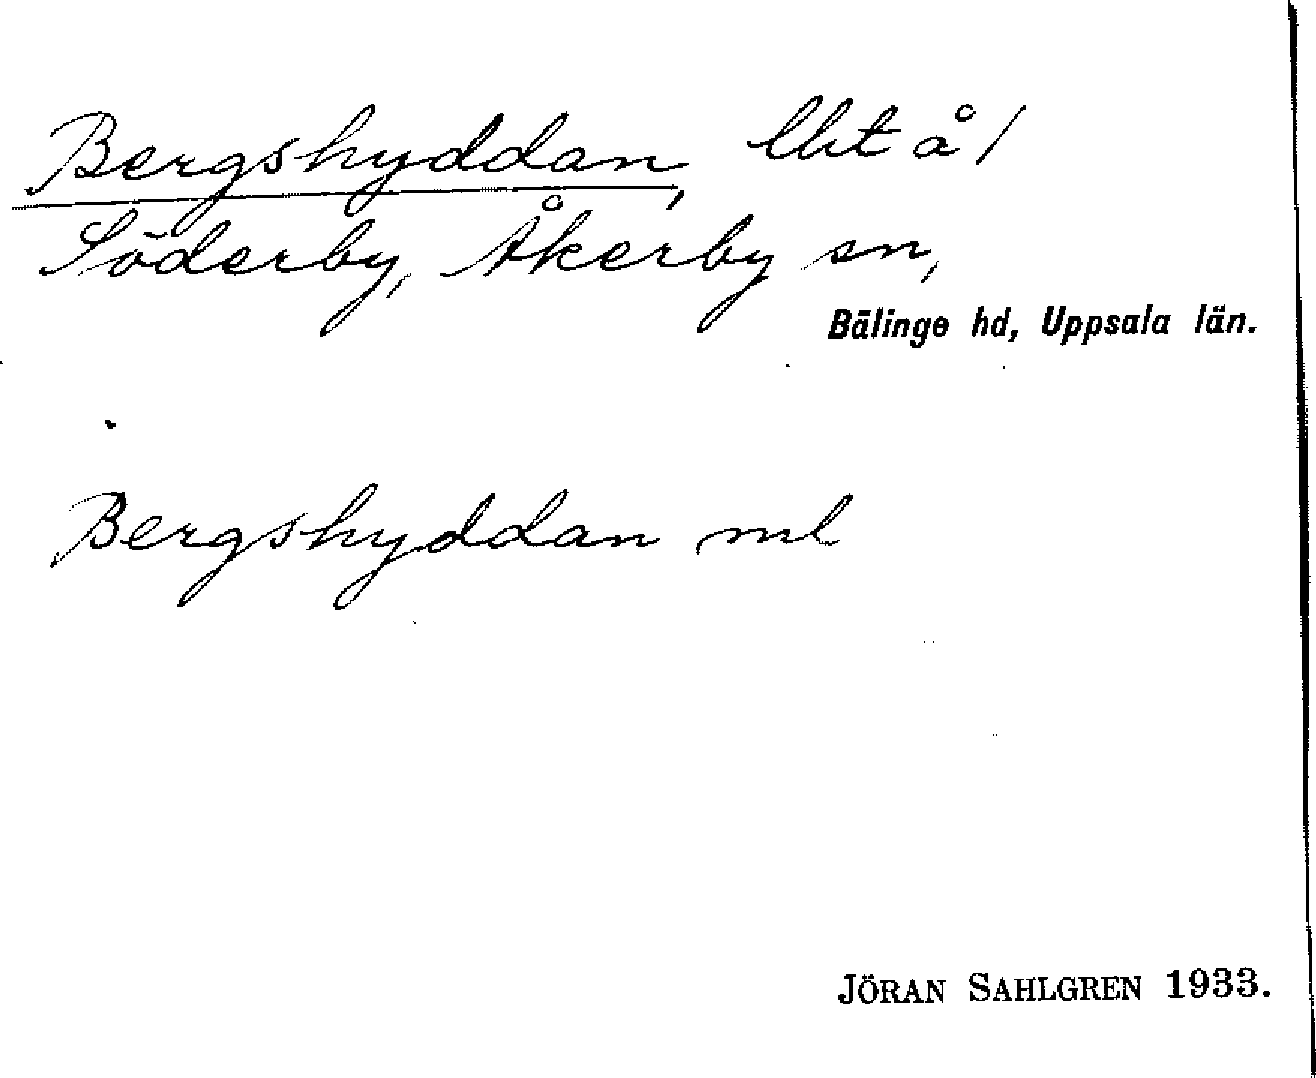 Bergshyddan, lht å 1
Söderby, Åkerby sn,
Bälinge hd, Uppsala län.
Bergshyddan ml
JÖRAN SAHLGREN 1933.